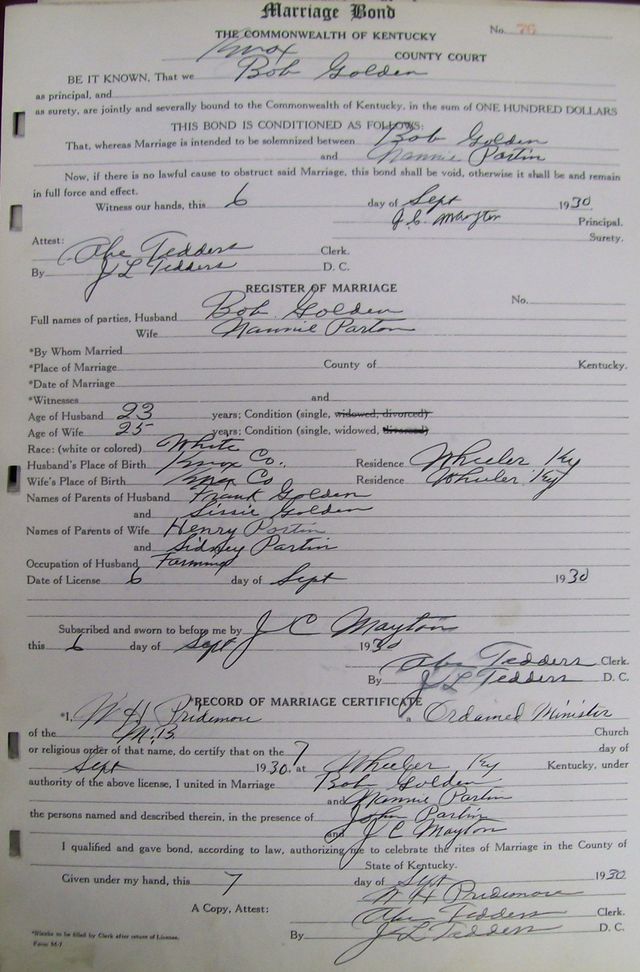 Marriage Bond
THE COMMONWEALTH OF KENTUCKY No. 76
Knox COUNTY COURT
BE IT KNOWN, That we Bob Golden
as principal, and
as surety, are jointly and severally bound to the Commonwealth of Kentucky, in the sum of ONE HUNDRED DOLLARS
THIS BOND IS CONDITIONED AS FOLLOWS:
That, whereas Marriage is intended to be solemnized between Bob Golden
and Nannie Partin
Now, if there is no lawful cause to obstruct said Marriage, this bond shall be void, otherwise it shall be and remain
in full force and effect.
Witness our hands, this 6 day of Sept 1930
J.C. Mayton Principal.
Surety.
Attest: Abe Tedders Clerk.
By J L Tedders D. C.
REGISTER OF MARRIAGE
No.
Full names of parties, Husband Bob Golden
Wife Nannie Parton
*By Whom Married
*Place of Marriage County of Kentucky.
*Date of Marriage
*Witnesses and
Age of Husband 23 years; Condition (single, widowed, divorced)
Age of Wife 25 years; Condition (single, widowed, divorced)
Race: (white or colored) White
Husband's Place of Birth Knox Co., Residence Wheeler Ky
Wife's Place of Birth Knox Co Residence Wheeler Ky
Names of Parents of Husband Frank Golden
and Sissie Golden
Names of Parents of Wife Henry Partin
and Sidney Partin
Occupation of Husband Farming
Date of License 6 day of Sept 1930
Subscribed and sworn to before me by J C Mayton
this 6 day of Sept 1930
Abe Tedders Clerk.
By J L Tedders D. C.
RECORD OF MARRIAGE CERTIFICATE
*I, W H Pridemore a Ordained Minister
of the M.B Church
or religious order of that name, do certify that on the 7 day of
Sept 1930. at Wheeler Ky Kentucky, under
authority of the above license, I united in Marriage Bob Golden
and Nannie Partin
the persons named and described therein, in the presence of John Partin
and J C Mayton
I qualified and gave bond, according to law, authorizing me to celebrate the rites of Marriage in the County of
State of Kentucky.
Given under my hand, this 7 day of Sept 1930
W H Pridemore
A Copy, Attest: Abe Tedders Clerk.
By J L Tedders D. C.
*Blanks to be filled by Clerk after return of License.
Form M-7